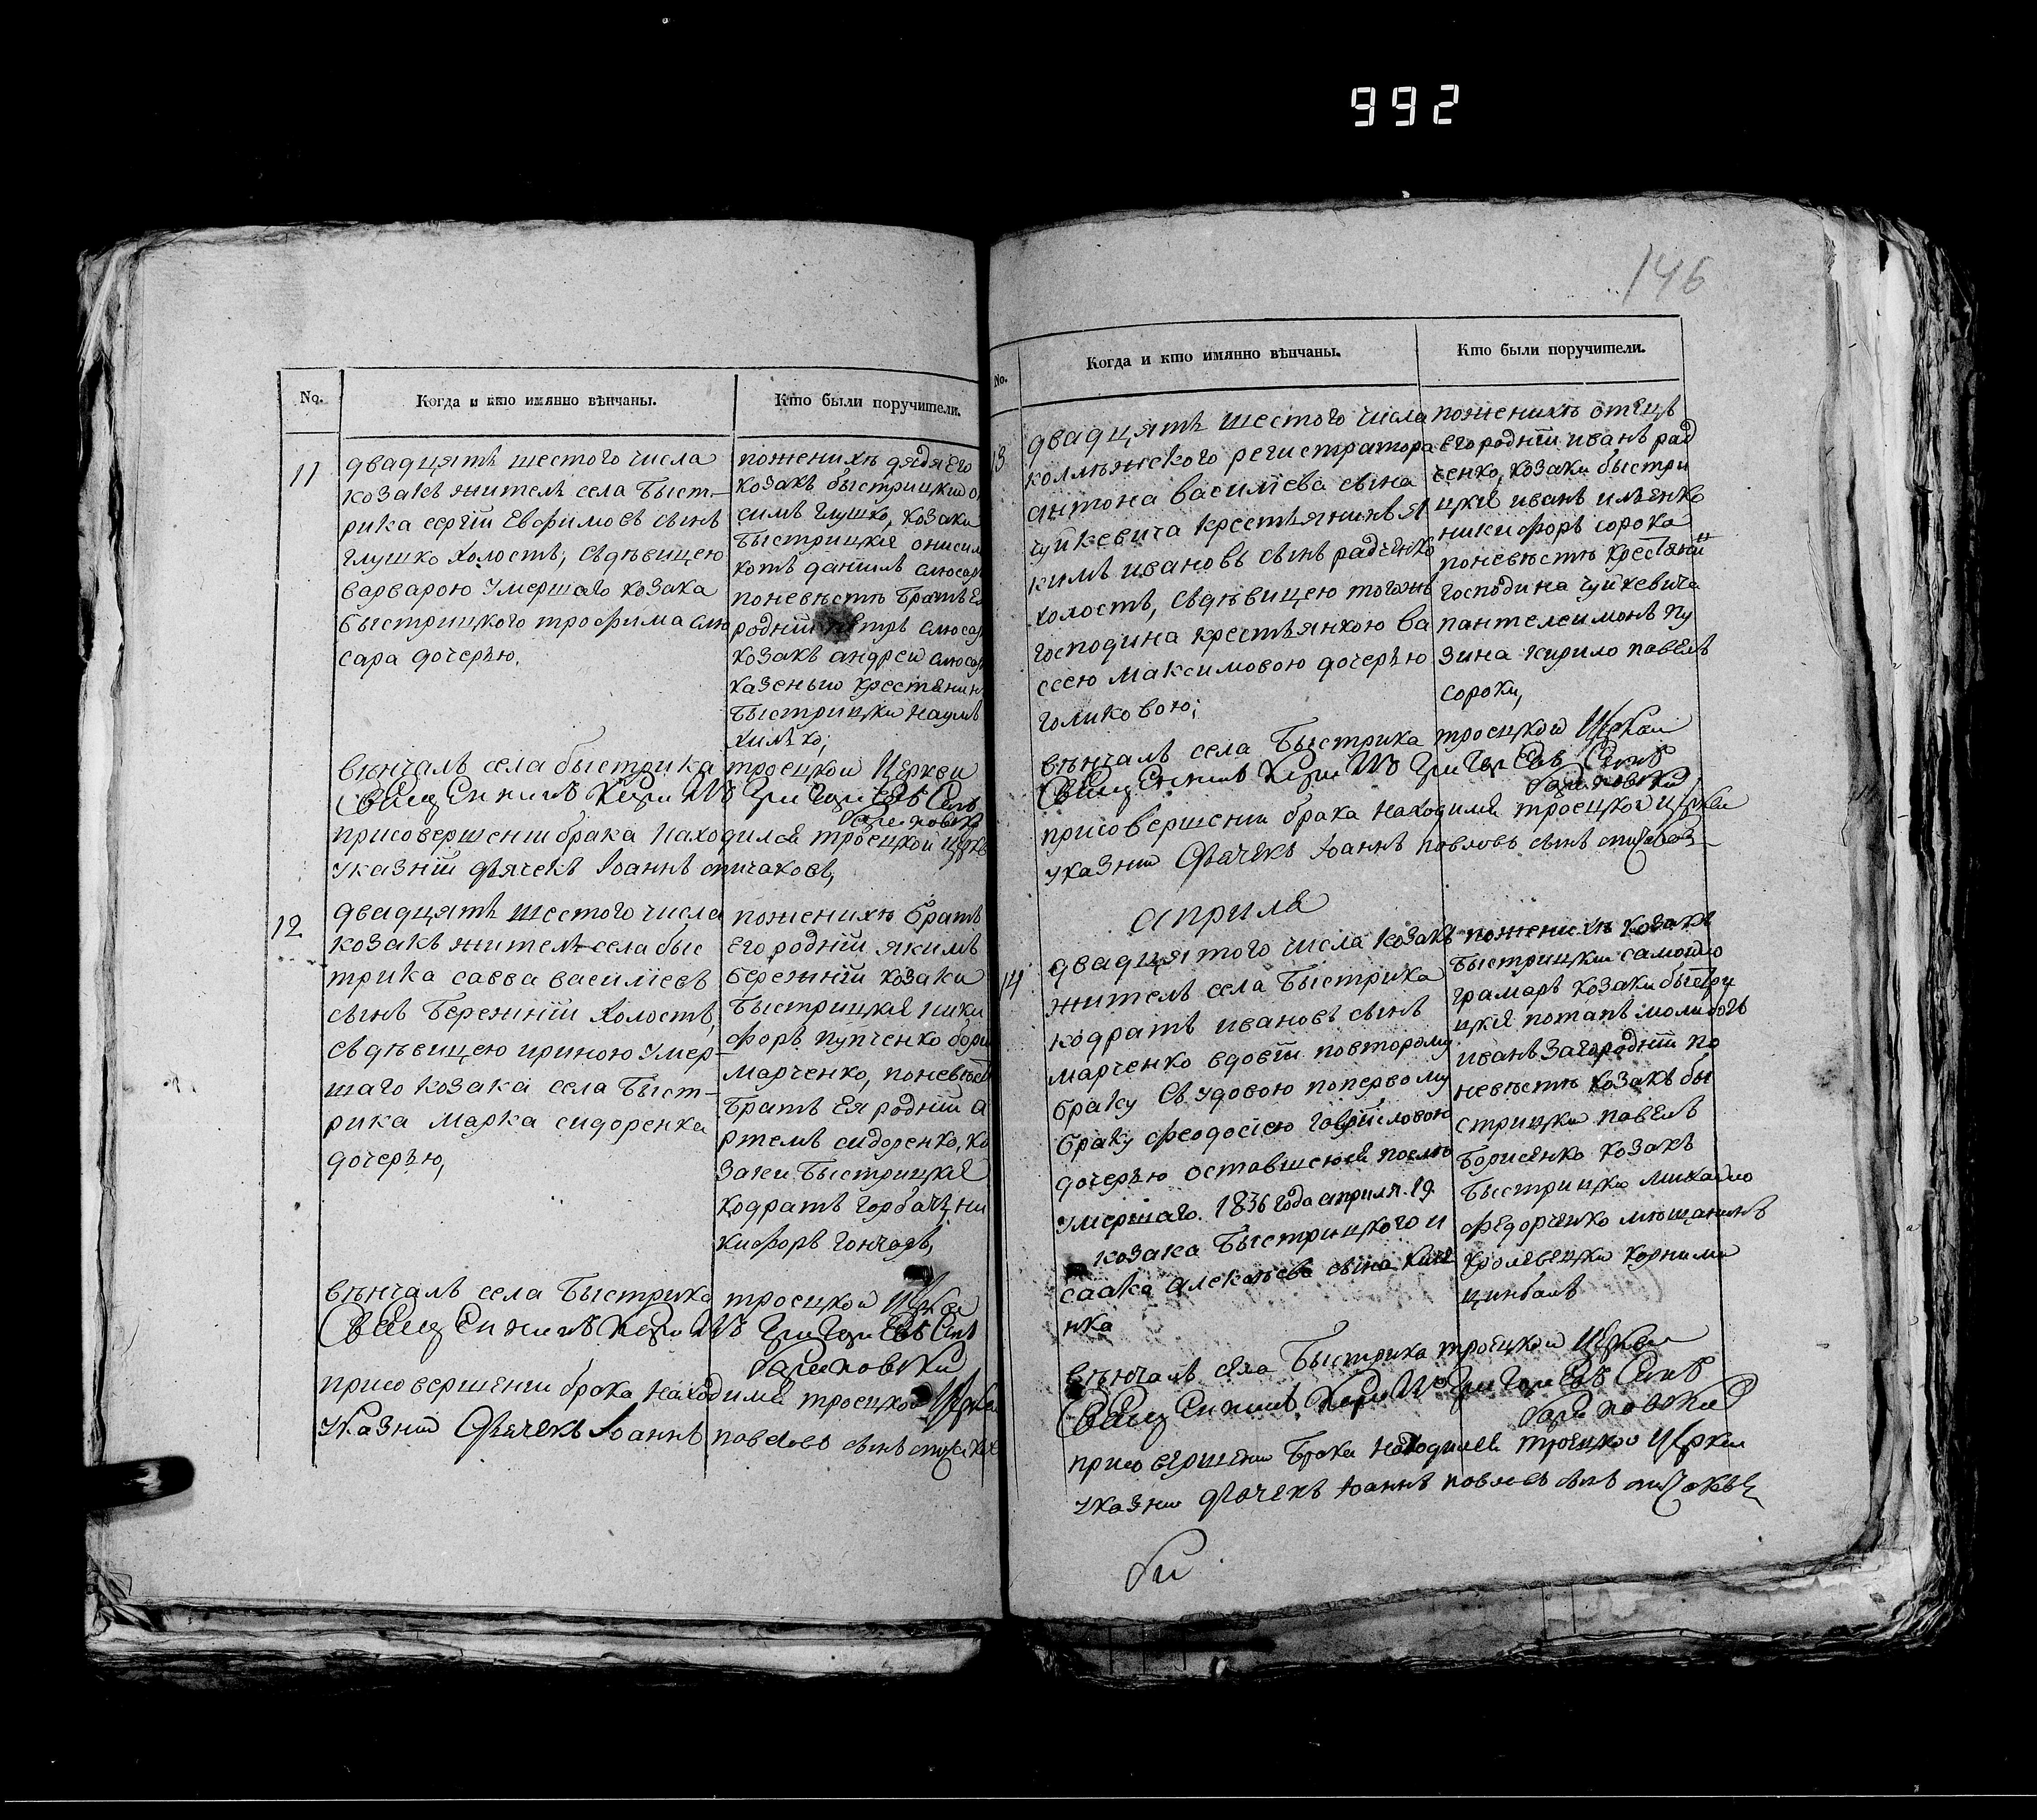 992
146
No. Когда и кто имянно вѣнчаны. Кто были поручители.
11
двадцять шестого числа
козакъ житель села Быст-
рика сергіи Евфимовъ сынъ
глушко холостъ, съдѣвицею
варварою умершаго козака
быстрицкого трофима слю
сара дочерью.
поженихѣ дядя его
козакъ быстрицкии
симъ глушко, козаки
Быстрицкія онисим
котъ даніилъ слюсар
поневѣстѣ Братъ Ея
родніи петръ слюсар
козакъ андреи слюсар
казеныи крестянин
Быстрицки наумъ
хилько;
вѣнчалъ села быстрика троецкои Церкви
Священникъ Григориевъ
присовершении брака находился троецкои церкв
указніи дьячекъ Іоаннъ спичаковъ,
12
двадцять шестого числа
козакъ житель села быс
трика савва василіевъ
сынъ Бережніи холостъ,
съдѣвицею ириною умер-
шаго козака села Быст-
рика марка сидоренка
дочерью,
поженихѣ братъ
его родніи якимъ
бережніи козаки
Быстрицкія ники
форъ пупченко бори
марченко, поневѣст
Братъ Ея родніи а
ртемъ сидоренко, ко
заки Быстрицкія
кодратъ горбачъ, ни
кифоръ гончаръ,
вѣнчалъ села Быстрика троецкои Церкви
Священникъ Григориевъ
присовершении брака находился троецкои Церкви
указніи Дьячекъ Іоаннъ павловъ сынъ
No. Когда и кто имянно вѣнчаны. Кто были поручители.
13
двадцять шестого числа
коллѣжского регистратора
антона василіева сына
чуйкевича крестьянинъ я
кимъ ивановъ сынъ радченко
холостъ, съдѣвицею тогожъ
господина крестьянкою ва
ссею максимовою дочерью
голиковою;
поженихѣ отецъ
его родніи иванъ рад
ченко, козаки быстри
цкія иванъ ильенко
никифоръ сорока
поневѣстѣ крестяни
господина чуйкевича
пантелеимонъ пу
зина кирило павелъ
сороки,
вѣнчалъ села Быстрика троецкои Церкви
Священникъ Григориевъ
присовершении брака находился троецкои церкви
указніи Дьячекъ Іоаннъ павловъ сынъ
априля
14
двадцятого числа козакъ
житель села Быстрика
кодратъ ивановъ сынъ
марченко вдовъ повторому
браку съ удовою попервому
браку феодосіею гавриіловою
дочерью оставшеюся послѣ
умершаго 1836 года априля 19
козака Быстрицкого и
саака алексѣева сына
нка
поженихѣ козакъ
Быстрицкии самоило
грамаръ козаки быстри
цкія потапъ молибогъ
иванъ загородніи по
невѣстѣ козакъ бы
стрицки павелъ
Борисенко козакъ
Быстрицки михаило
федорченко мѣщанинъ
кролевецки корнилии
цинбалъ
вѣнчалъ села Быстрика троецкои Церкви
Священникъ Григориевъ
присовершении Брака находился троецкои Церкви
указніи дьячекъ Іоаннъ павловъ сынъ